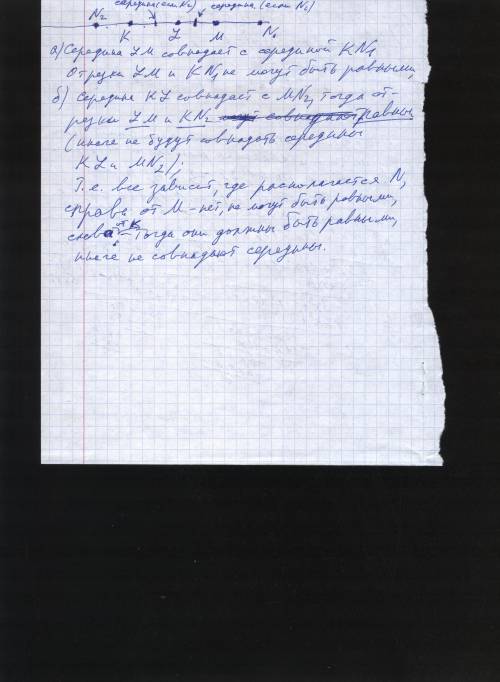 середина (если N₂) середина (если N₁)
N₂ K L M N₁
а) Середина LM совпадает с серединой KN₁
Отрезки LM и KN₁ не могут быть равными,
б) Середина KL совпадает с MN₂, тогда от-
резки LM и KN₂ равны
(иначе не будут совпадать середины
KL и MN₂);
Т.е. все зависит, где располагается N,
справа от M - нет, не могут быть равными,
слева от K - тогда они должны быть равными,
иначе не совпадают середины.